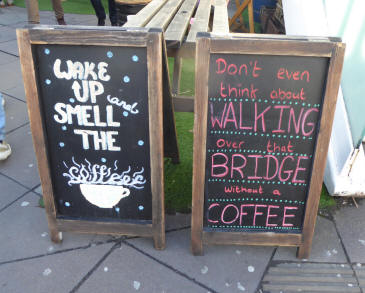 WAKE
UP and
SMELL
THE
Coffee
Don't even
think about
WALKING
Over that
BRIDGE
without a
COFFEE